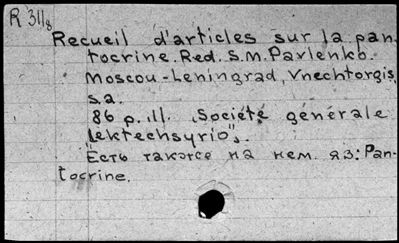 R 311/8
Recueil d'articles sur la pan-
tocrine. Red. S.M. Pavlenko.
Moscou-Leningrad, Vnechtorgis,
s.a.
86 p. ill. „Société générale
Lektechsyrio".
"Есть также на нем. яз: Pan-
tocrine.